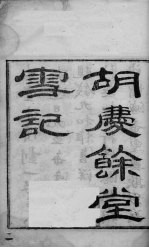 胡慶餘堂
雪記